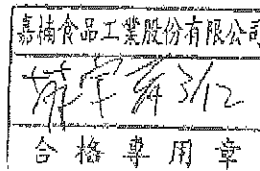 嘉楠食品工業股份有限公司
3/12
合格專用章